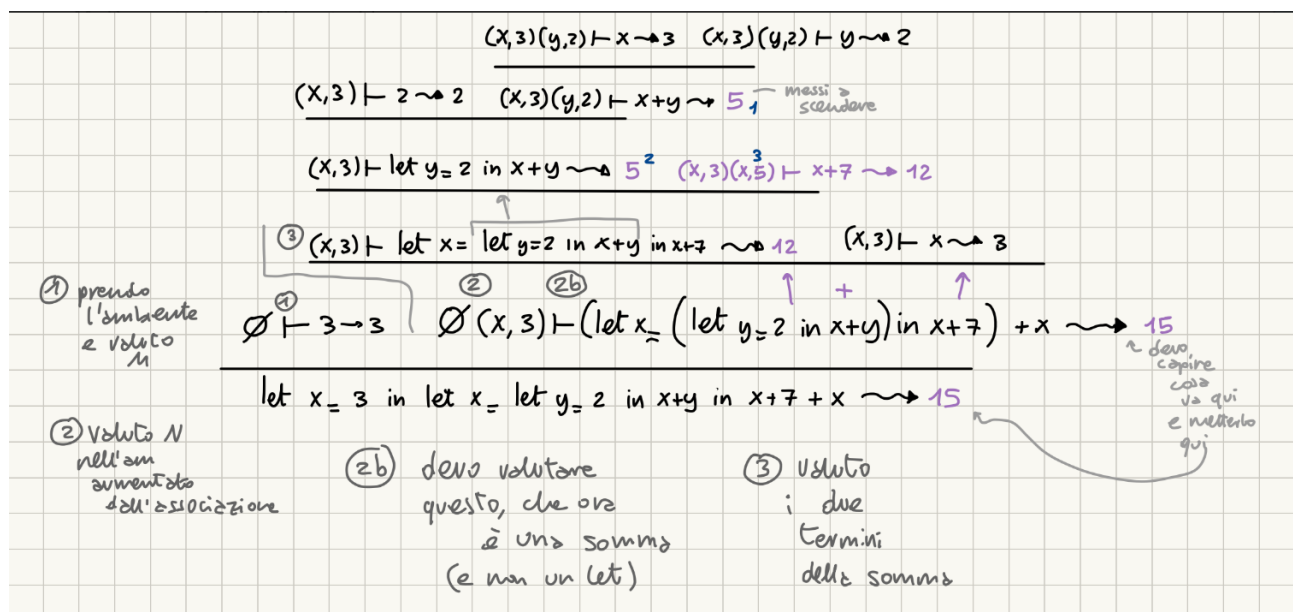 (x,3)(y,2) ⊢ x ⇝ 3 (x,3)(y,2) ⊢ y ⇝ 2
(x,3) ⊢ 2 ⇝ 2 (x,3)(y,2) ⊢ x+y ⇝ 5 1 messi a
scendere
(x,3) ⊢ let y=2 in x+y ⇝ 5 2 (x,3)(x,5) 3 ⊢ x+7 ⇝ 12
③ (x,3) ⊢ let x= let y=2 in x+y in x+7 ⇝ 12 (x,3) ⊢ x ⇝ 3
① prendo
l'ambiente
e valuto
M
① ② 2b +
∅ ⊢ 3 → 3 ∅ (x,3) ⊢ (let x= (let y=2 in x+y) in x+7) + x ⇝ 15
devo
capire
cosa
va qui
e metterlo
qui
let x= 3 in let x= let y=2 in x+y in x+7 + x ⇝ 15
② valuto N
nell'am
aumentato
dall'associazione
2b devo valutare
questo, che ora
è una somma
(e non un let)
③ valuto
i due
termini
della somma